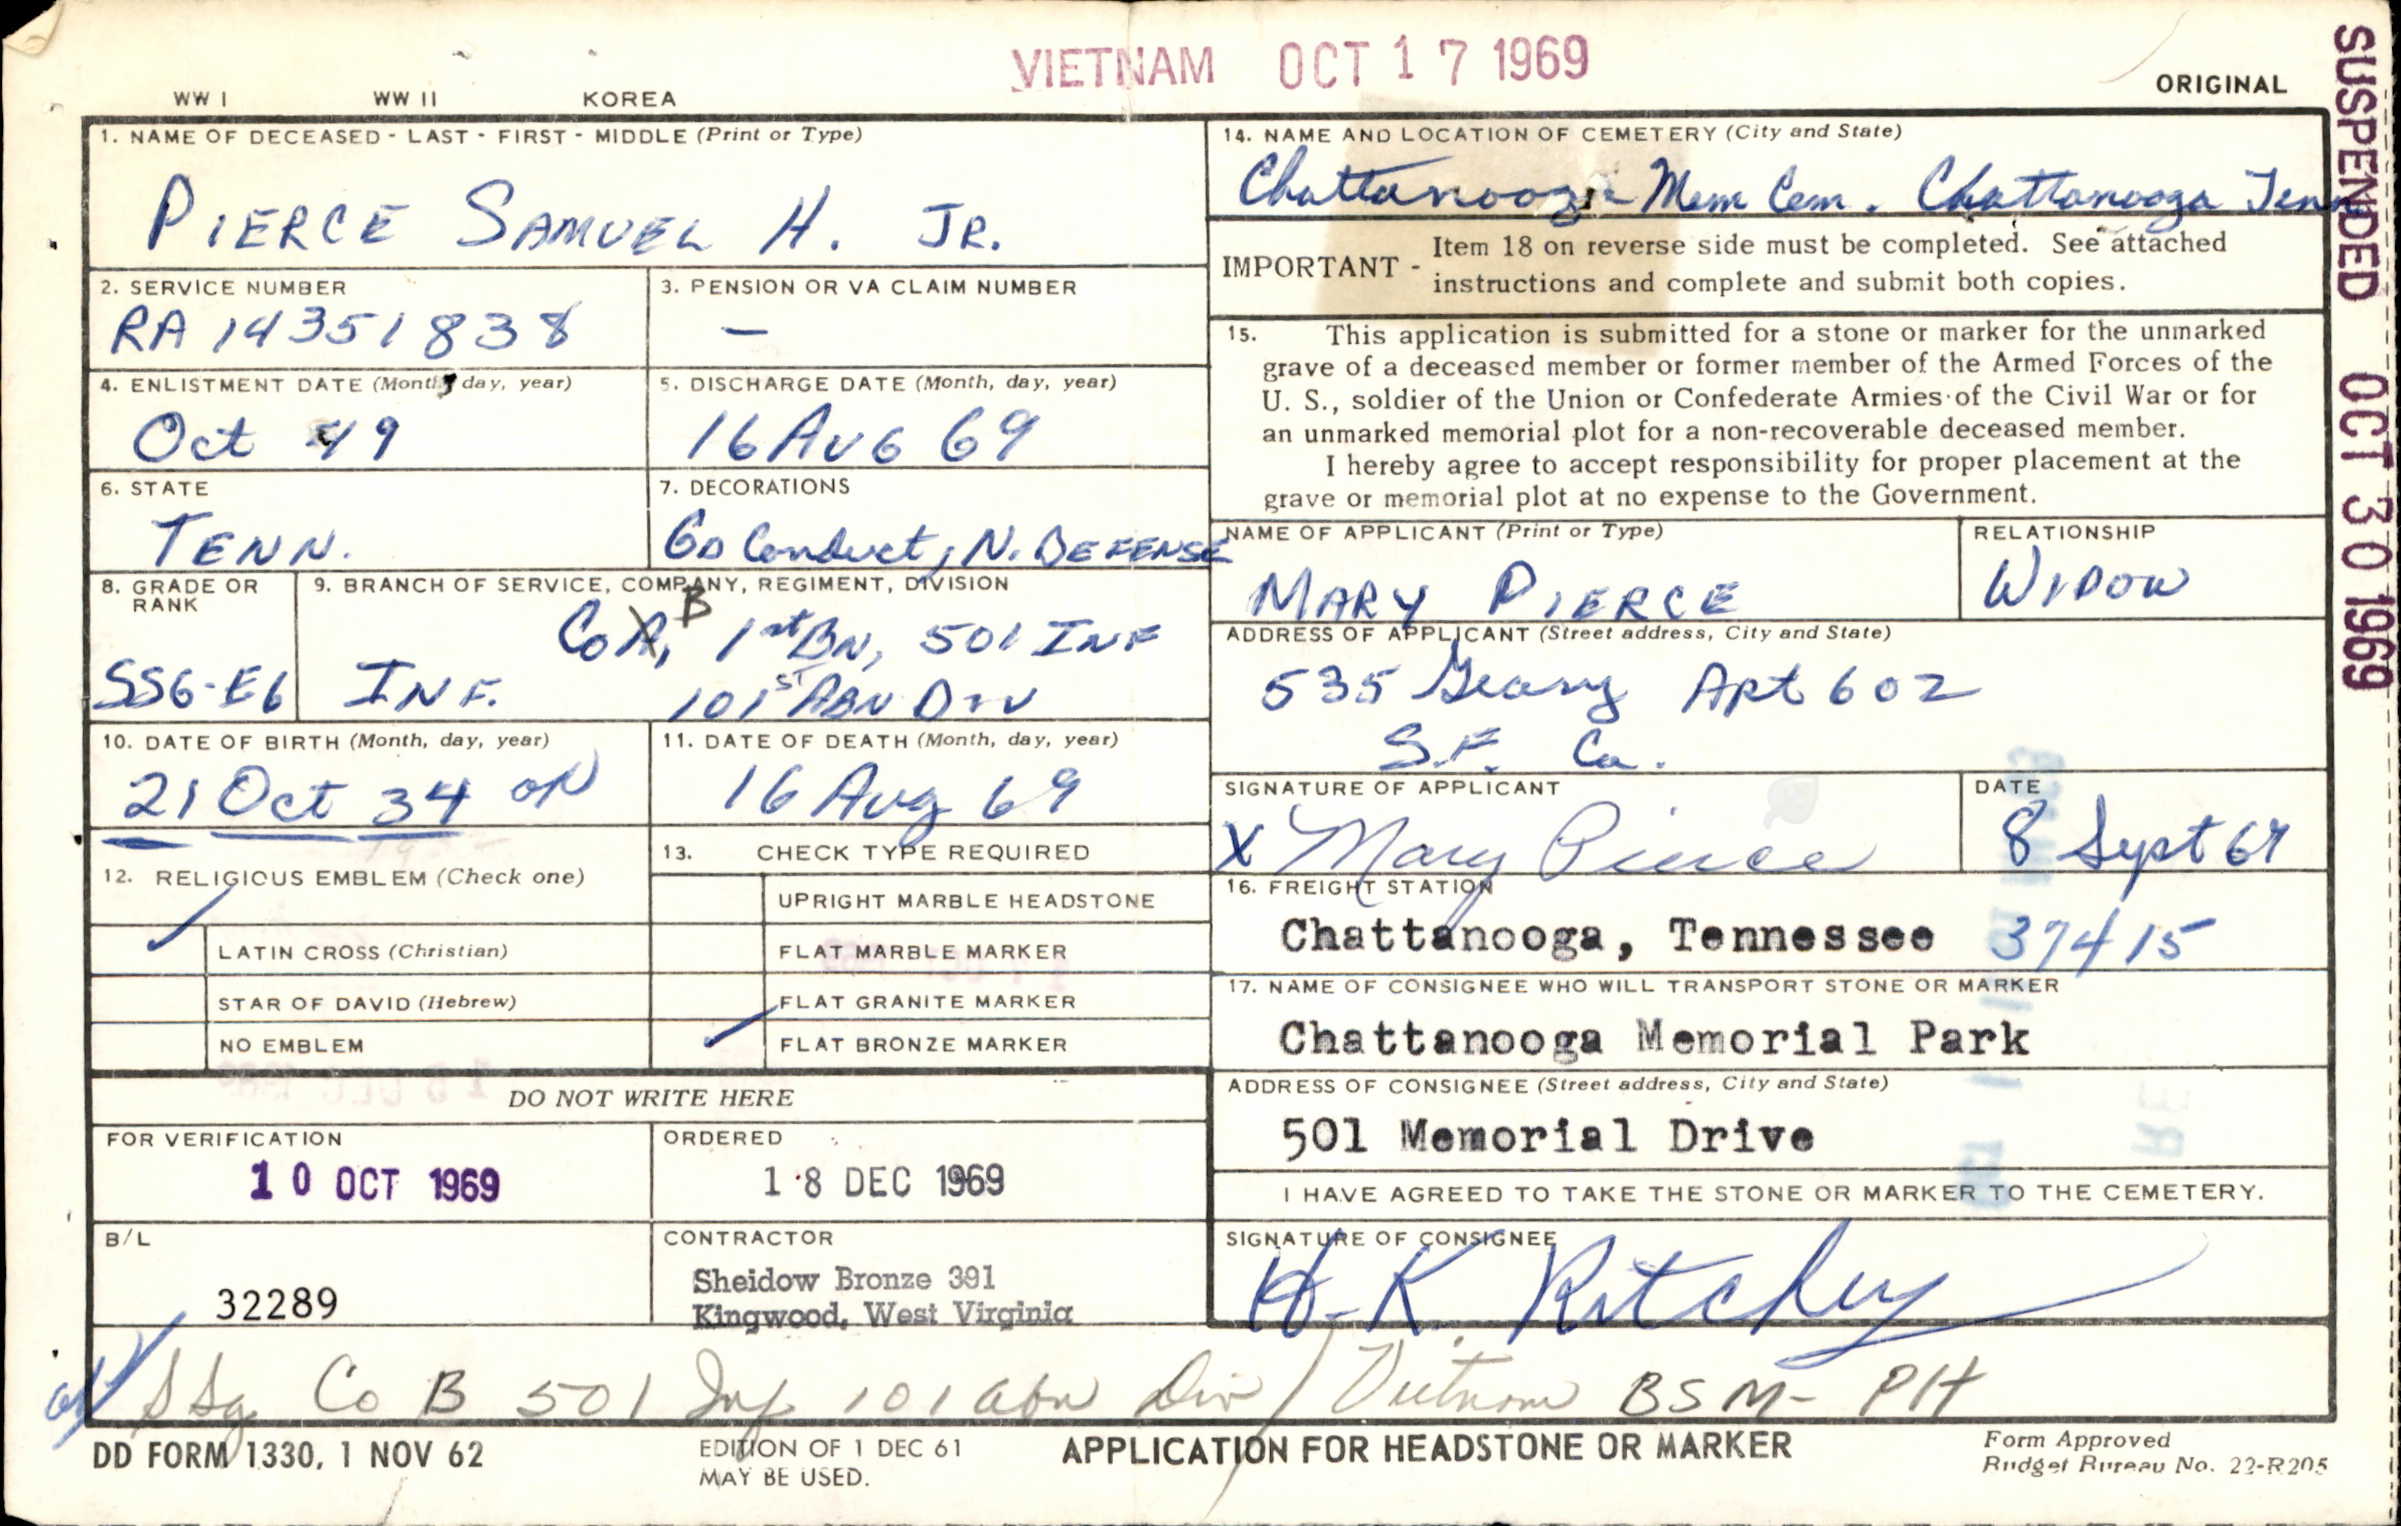 VIETNAM OCT 17 1969
WW I WW II KOREA
ORIGINAL
SUSPENDED OCT 30 1969
1. NAME OF DECEASED - LAST - FIRST - MIDDLE (Print or Type)
PIERCE SAMUEL H. JR.
2. SERVICE NUMBER
RA 14351838
3. PENSION OR VA CLAIM NUMBER
—
4. ENLISTMENT DATE (Month, day, year)
Oct 49
5. DISCHARGE DATE (Month, day, year)
16 AUG 69
6. STATE
TENN.
7. DECORATIONS
GD Conduct, N. DEFENSE
8. GRADE OR RANK
SSG-E6
9. BRANCH OF SERVICE, COMPANY, REGIMENT, DIVISION
INF.
Co A, B 1st BN, 501 INF
101ST ABN DIV
10. DATE OF BIRTH (Month, day, year)
21 Oct 34
11. DATE OF DEATH (Month, day, year)
16 Aug 69
12. RELIGIOUS EMBLEM (Check one)
LATIN CROSS (Christian)
STAR OF DAVID (Hebrew)
NO EMBLEM
13. CHECK TYPE REQUIRED
UPRIGHT MARBLE HEADSTONE
FLAT MARBLE MARKER
FLAT GRANITE MARKER
FLAT BRONZE MARKER
DO NOT WRITE HERE
FOR VERIFICATION
10 OCT 1969
ORDERED
18 DEC 1969
B/L
32289
CONTRACTOR
Sheidow Bronze 391
Kingwood, West Virginia
14. NAME AND LOCATION OF CEMETERY (City and State)
Chattanooga Mem Cem. Chattanooga Tenn
IMPORTANT - Item 18 on reverse side must be completed. See attached
instructions and complete and submit both copies.
15. This application is submitted for a stone or marker for the unmarked
grave of a deceased member or former member of the Armed Forces of the
U. S., soldier of the Union or Confederate Armies of the Civil War or for
an unmarked memorial plot for a non-recoverable deceased member.
I hereby agree to accept responsibility for proper placement at the
grave or memorial plot at no expense to the Government.
NAME OF APPLICANT (Print or Type)
MARY PIERCE
RELATIONSHIP
WIDOW
ADDRESS OF APPLICANT (Street address, City and State)
535 Geary Apt 602
S.F. Ca.
SIGNATURE OF APPLICANT
X Mary Pierce
DATE
8 Sept 69
16. FREIGHT STATION
Chattanooga, Tennessee 37415
17. NAME OF CONSIGNEE WHO WILL TRANSPORT STONE OR MARKER
Chattanooga Memorial Park
ADDRESS OF CONSIGNEE (Street address, City and State)
501 Memorial Drive
I HAVE AGREED TO TAKE THE STONE OR MARKER TO THE CEMETERY.
SIGNATURE OF CONSIGNEE
H. K. Ritchey
SSg Co B 501 Inf 101 abn Div / Vietnam BSM- PH
DD FORM 1330, 1 NOV 62
EDITION OF 1 DEC 61
MAY BE USED.
APPLICATION FOR HEADSTONE OR MARKER
Form Approved
Budget Bureau No. 22-R205